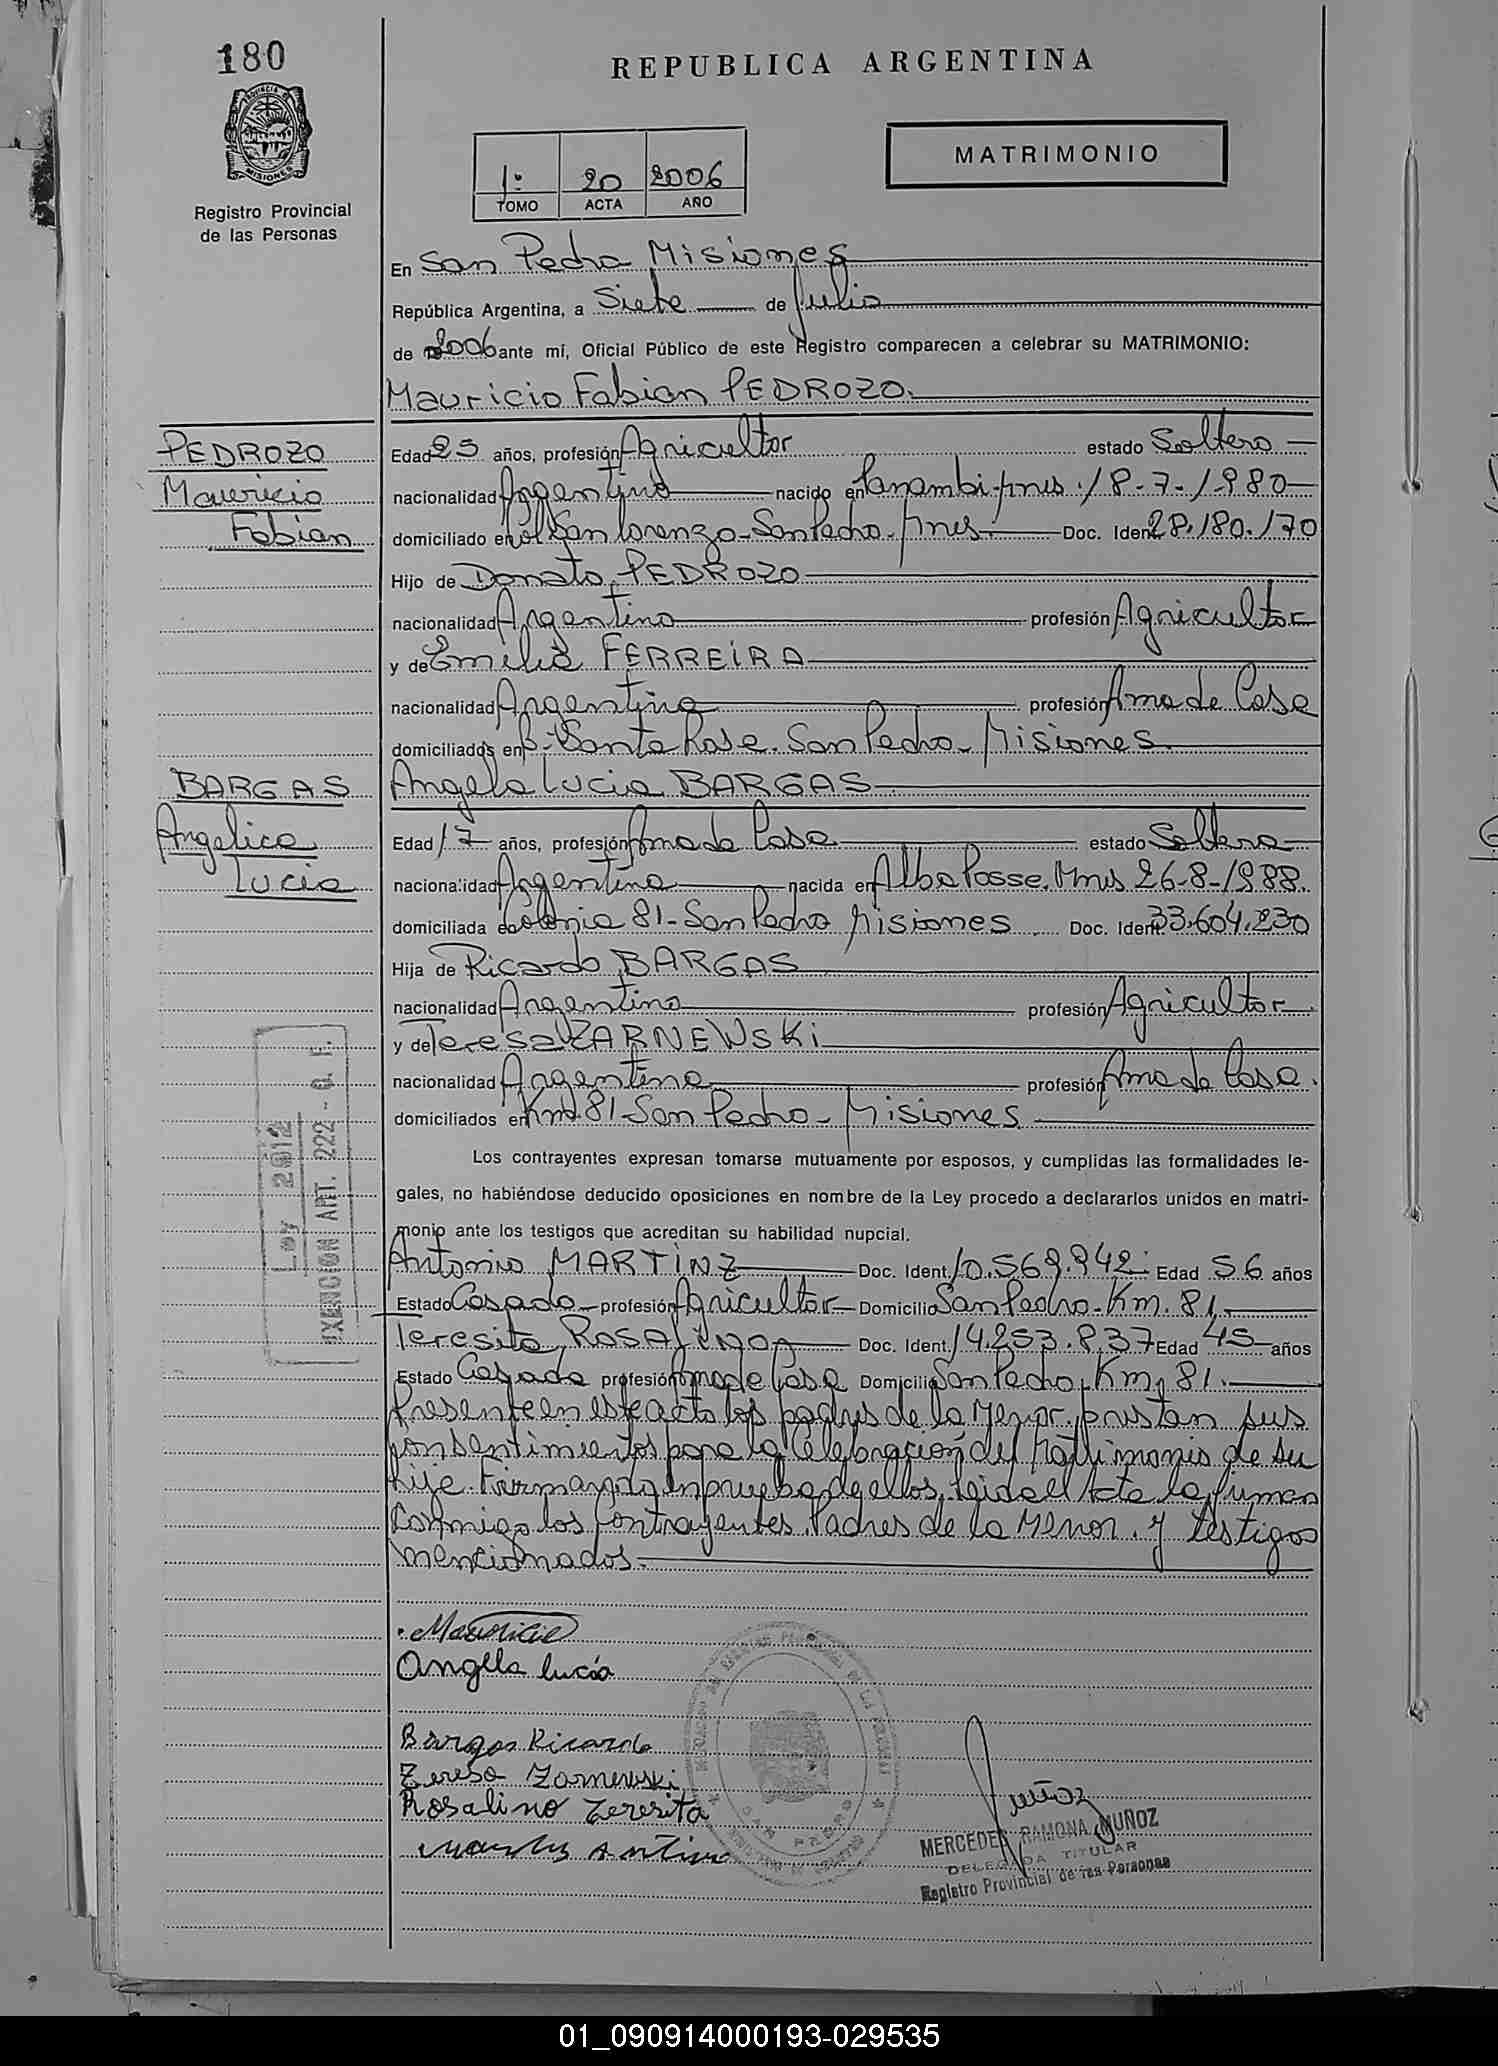 180
REPUBLICA ARGENTINA
MATRIMONIO
1º 20 2006
TOMO ACTA AÑO
PROVINCIA DE MISIONES
Registro Provincial
de las Personas
En San Pedro Misiones
República Argentina, a Siete de Julio
de 2006 ante mí, Oficial Público de este Registro comparecen a celebrar su MATRIMONIO:
Mauricio Fabian PEDROZO.
PEDROZO
Mauricio
Fabian
Edad 25 años, profesión Agricultor estado Soltero
nacionalidad Argentino nacido en Panambi-Mnes. 18-7-1980
domiciliado en Col San Lorenzo-San Pedro-Mnes. Doc. Ident. 28.180.170
Hijo de Donato PEDROZO
nacionalidad Argentino profesión Agricultor
y de Emilia FERREIRA
nacionalidad Argentina profesión Ama de Casa
domiciliados en Bº Santa Rosa. San Pedro-Misiones.
BARGAS
Angelica
Lucia
Angela Lucia BARGAS
Edad 17 años, profesión Ama de Casa estado Soltera
nacionalidad Argentina nacida en Alba Posse. Mnes 26-8-1988.
domiciliada en Colonia 81-San Pedro Misiones Doc. Ident. 33.604.230
Hija de Ricardo BARGAS
nacionalidad Argentino profesión Agricultor
y de Teresa ZARNEWSKi
nacionalidad Argentina profesión Ama de Casa.
domiciliados en Km. 81-San Pedro-Misiones
Los contrayentes expresan tomarse mutuamente por esposos, y cumplidas las formalidades le-
gales, no habiéndose deducido oposiciones en nombre de la Ley procedo a declararlos unidos en matri-
monio ante los testigos que acreditan su habilidad nupcial.
Antonio MARTiNZ Doc. Ident. 10.569.942. Edad 56 años
Estado Casado profesión Agricultor Domicilio San Pedro-Km. 81.
Teresita ROSALiNO Doc. Ident. 14.253.837 Edad 45 años
Estado Casada profesión Ama de Casa Domicilio San Pedro, Km, 81.
Presente en este acto los padres de la Menor, prestan sus
consentimientos para la Celebración del Matrimonio de su
hija. Firmando en prueba de ellos, leida el Acta la firman
Conmigo los Contrayentes, Padres de la Menor. y testigos
mencionados.
Ley 2912
EXENCION ART. 222 - C. F.
Mauricio
Angela Lucía
Bargas Ricardo
Teresa Zarnewski
Rosalino Teresita
SAN PEDRO
Muñoz
MERCEDES RAMONA MUÑOZ
DELEGADA TITULAR
Registro Provincial de las Personas
01_090914000193-029535